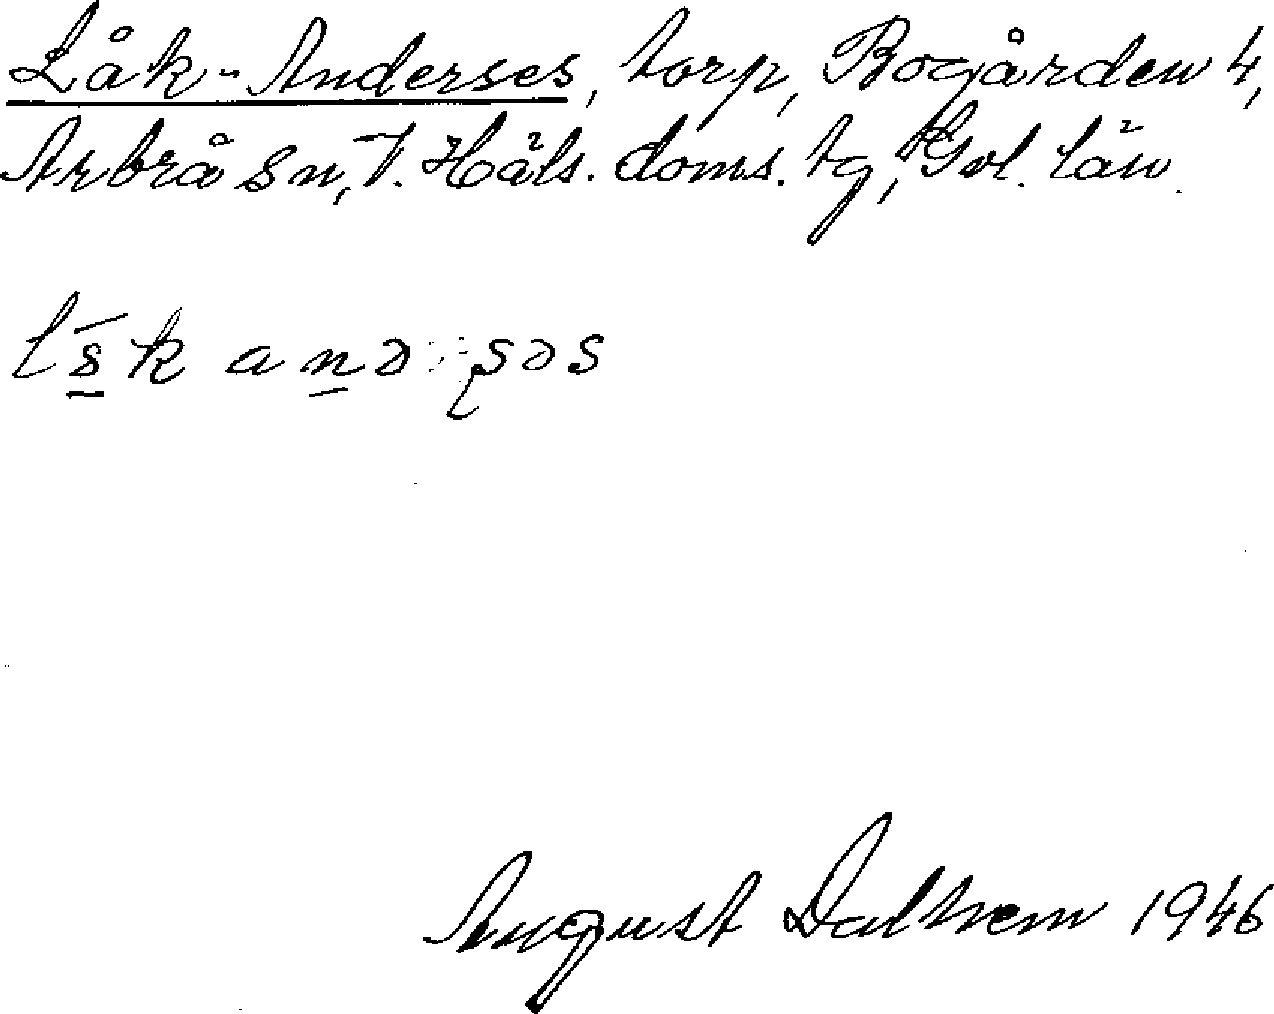 Låk-Anderses, torp, Bogården 4,
Arbrå sn, V. Häls. doms. tg, Gvl. län.
August Dalhem 1946